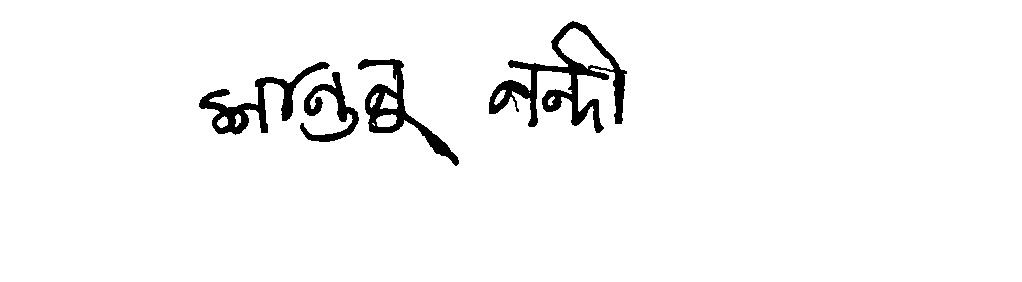 শানুনু নন্দী